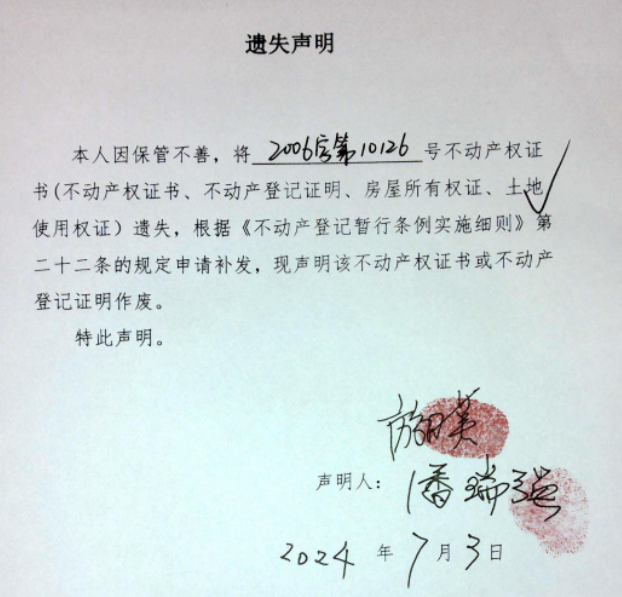 遗失声明
本人因保管不善，将 2006字第10126 号不动产权证
书(不动产权证书、不动产登记证明、房屋所有权证、土地
使用权证）遗失，根据《不动产登记暂行条例实施细则》第
二十二条的规定申请补发，现声明该不动产权证书或不动产
登记证明作废。
特此声明。
声明人：潘瑞强
2024 年 7 月 3 日